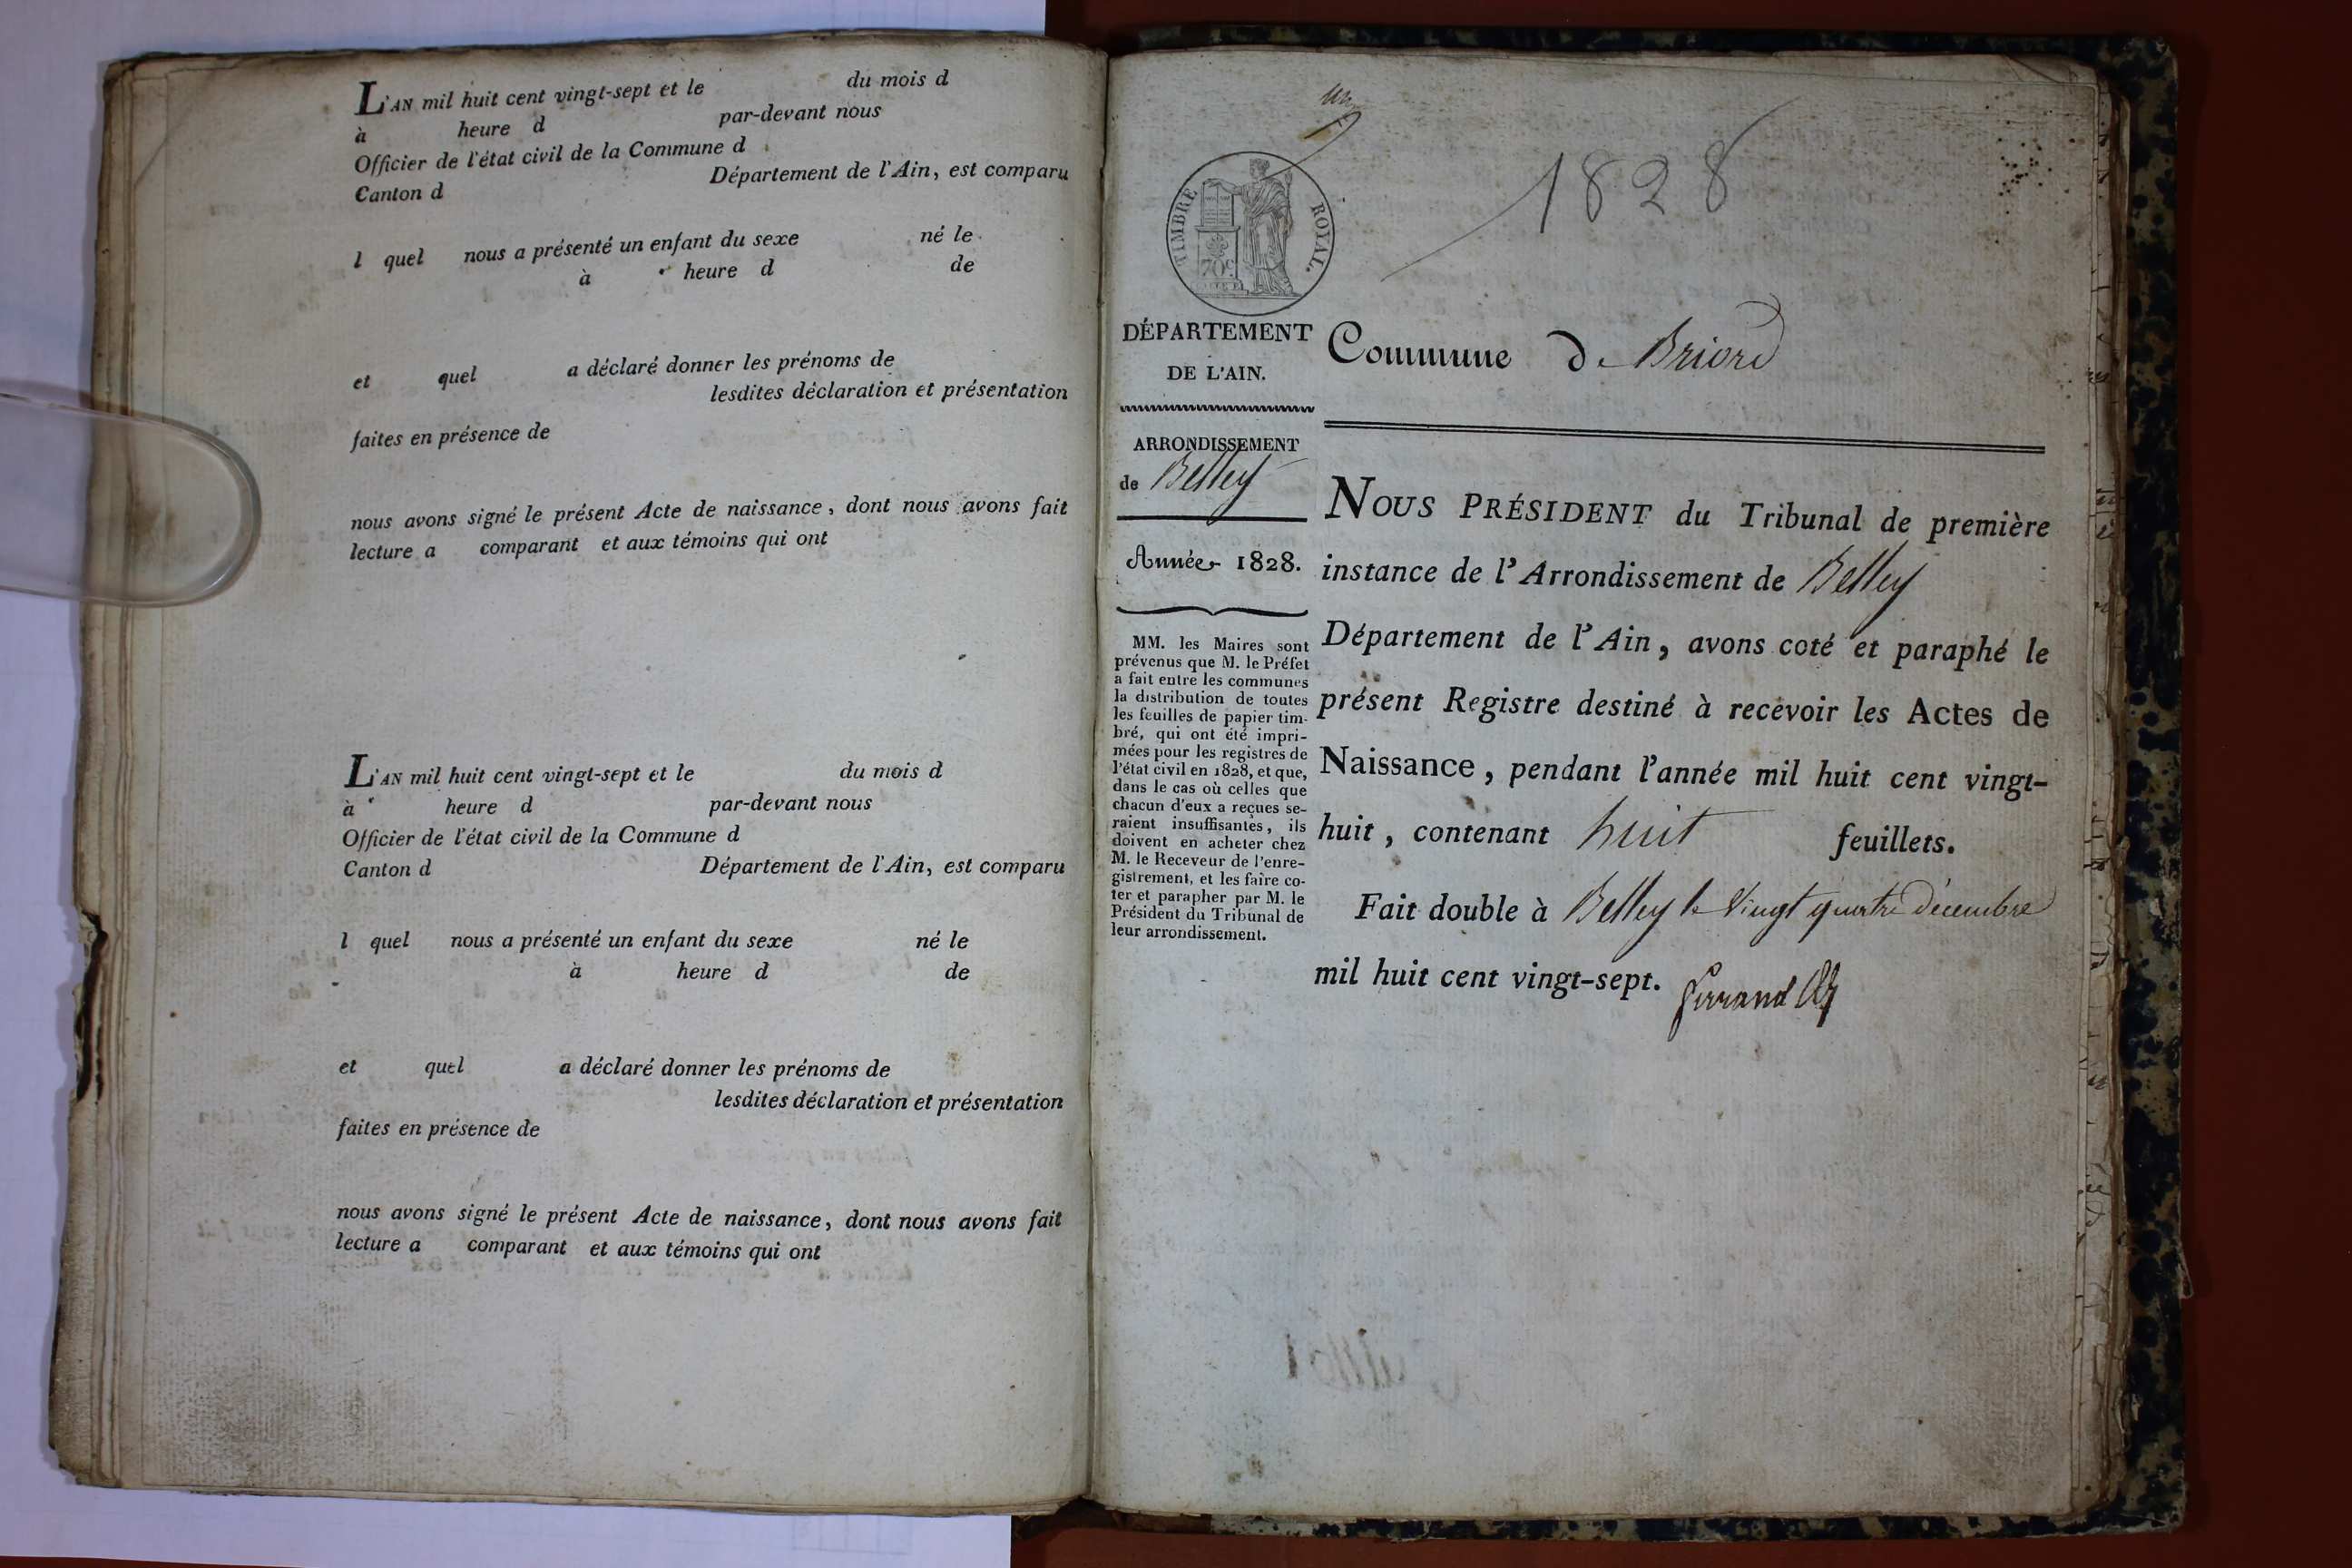 L'AN mil huit cent vingt-sept et le du mois d
à heure d par-devant nous
Officier de l'état civil de la Commune d
Canton d Département de l'Ain, est comparu
l quel nous a présenté un enfant du sexe né le
à heure d de
et quel a déclaré donner les prénoms de
lesdites déclaration et présentation
faites en présence de
nous avons signé le présent Acte de naissance, dont nous avons fait
lecture a comparant et aux témoins qui ont
L'AN mil huit cent vingt-sept et le du mois d
à heure d par-devant nous
Officier de l'état civil de la Commune d
Canton d Département de l'Ain, est comparu
l quel nous a présenté un enfant du sexe né le
à heure d de
et quel a déclaré donner les prénoms de
lesdites déclaration et présentation
faites en présence de
nous avons signé le présent Acte de naissance, dont nous avons fait
lecture a comparant et aux témoins qui ont
un
1828
TIMBRE ROYAL.
70c
DÉPARTEMENT
DE L'AIN.
ARRONDISSEMENT
de Belley
Année 1828.
MM. les Maires sont
prévenus que M. le Préfet
a fait entre les communes
la distribution de toutes
les feuilles de papier tim-
bré, qui ont été impri-
mées pour les registres de
l'état civil en 1828, et que,
dans le cas où celles que
chacun d'eux a reçues se-
raient insuffisantes, ils
doivent en acheter chez
M. le Receveur de l'enre-
gistrement, et les faire co-
ter et parapher par M. le
Président du Tribunal de
leur arrondissement.
Commune de Briord
NOUS PRÉSIDENT du Tribunal de première
instance de l'Arrondissement de Belley
Département de l'Ain, avons coté et paraphé le
présent Registre destiné à recevoir les Actes de
Naissance, pendant l'année mil huit cent vingt-
huit, contenant huit feuillets.
Fait double à Belley le vingt quatre Décembre
mil huit cent vingt-sept.